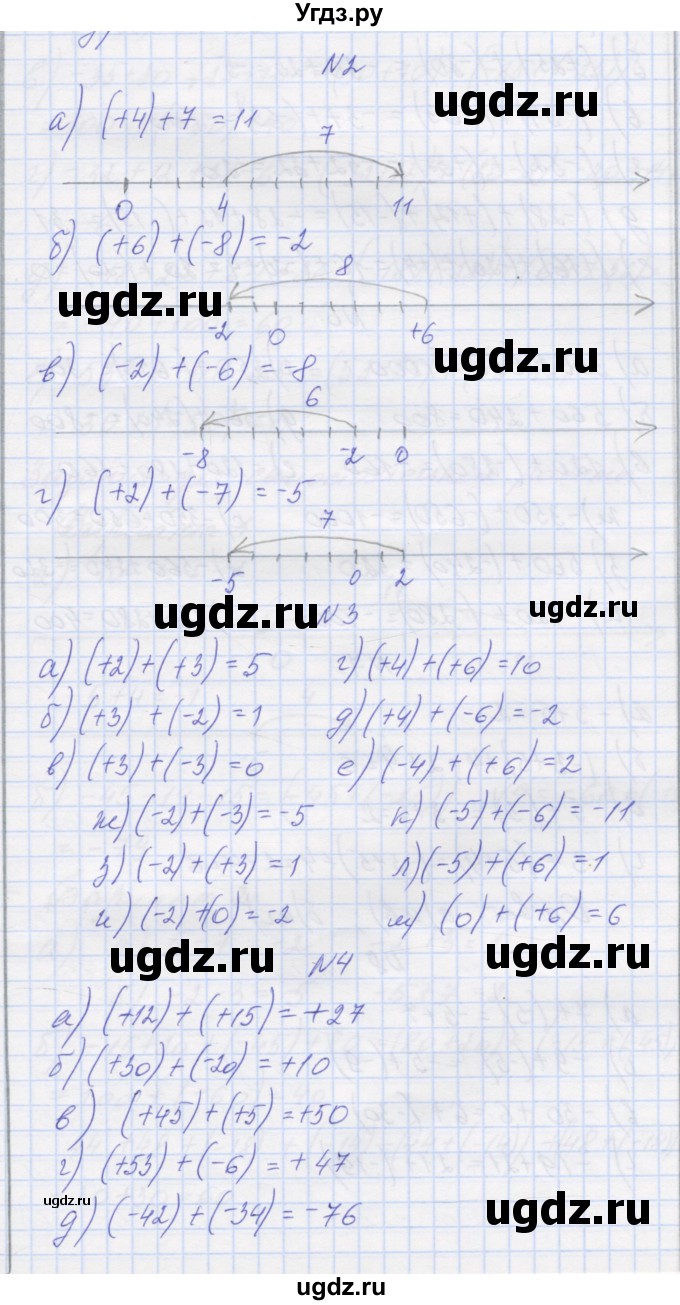 Угдз.ру
N2
ugdz.ru
а) (+4)+7 = 11
7
0 4 11
б) (+6) + (-8) = -2
ugdz.ru
8
-2 0 +6
в) (-2) + (-6) = -8
ugdz.ru
6
-8 -2 0
г) (+2) + (-7) = -5
7
-5 0 2
ugdz.ru
N3
ugdz.ru
а) (+2)+(+3) = 5 г) (+4)+(+6)=10
б) (+3) + (-2) = 1 д) (+4) + (-6) = -2
в) (+3)+(-3) = 0 е) (-4) + (+6) = 2
ж) (-2)+(-3) = -5 к) (-5)+(-6) = -11
з) (-2)+(+3) = 1 л) (-5) + (+6) = 1
и) (-2)+(0) = -2 м) (0) + (+6) = 6
ugdz.ru
N4
ugdz.ru
а) (+12) + (+15) = +27
б) (+30) + (-20) = +10
в) (+45)+(+5) = +50
г) (+53) + (-6) = +47
ugdz.ru
д) (-42) + (-34) = -76
ugdz.ru
ugdz.ru